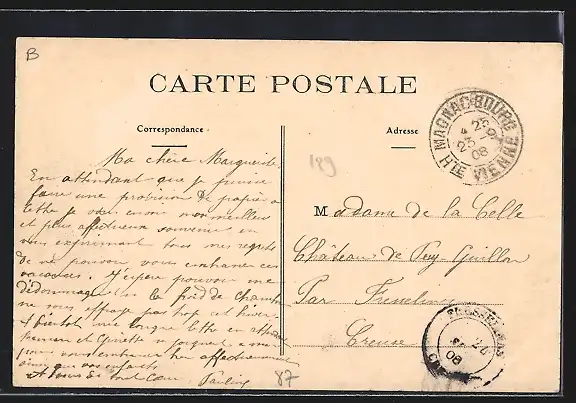 B
CARTE POSTALE
Correspondance
Adresse
MAGNAC-BOURG
23
08
HTE VIENNE
189
Ma chère Marguerite
En attendant que je puisse
faire une provision de papier à
lettre je vous envoie mon meilleur
et plus affectueux souvenir en
vous exprimant tous mes regrets
de ne pouvoir vous embrasser ces
vacances. J'espère pouvoir me
dédommager et le froid de Chamb
ne vous effraye pas trop cet hiver
A bientôt une longue lettre en
et Ginette se joignent à moi
pour vous embrasser bien affectueusement
ainsi que vos enfants
A vous de tout cœur, Pauline
87
Madame de la Celle
Château de Puy-Guillon
Par
Creuse
08